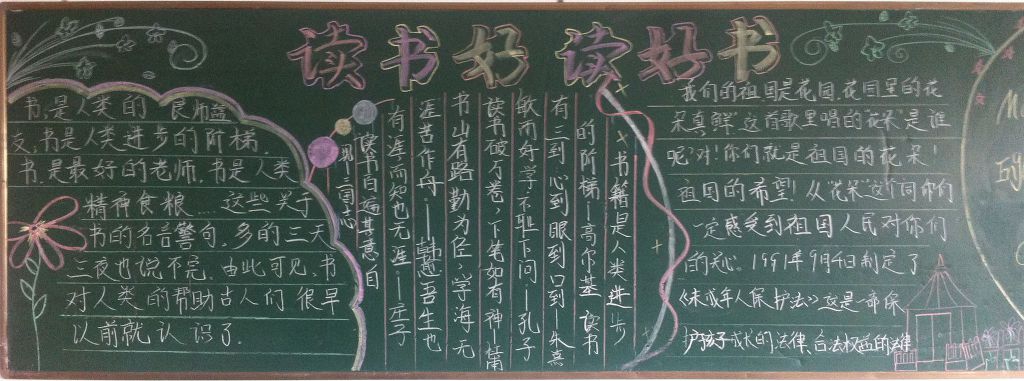 读书好 读好书
书,是人类的 良师益
友,书是人类进步的阶梯,
书,是最好的老师,书是人类
精神食粮……这些关于
书的名言警句,多的三天
三夜也说不完,由此可见,书
对人类的帮助古人们很早
以前就认识了.
书籍是人类进步
的阶梯—高尔基 读书
有三到心到眼到口到—朱熹
敏而好学不耻下问—孔子
读书破万卷,下笔如有神
书山有路勤为径,学海无
涯苦作舟.—韩愈 吾生也
有涯而知也无涯.—庄子
读书百遍其意自
现三国志
我们的祖国是花园,花园里的花
朵真鲜,这首歌里唱的花朵是谁
呢?对!你们就是祖国的花朵!
祖国的希望!从“花朵”这个词你们
一定感受到祖国人民对你们
的关心。1991年9月4日制定了
《未成年人保护法》这是一部保
护孩子成长的法律、合法权益的法律